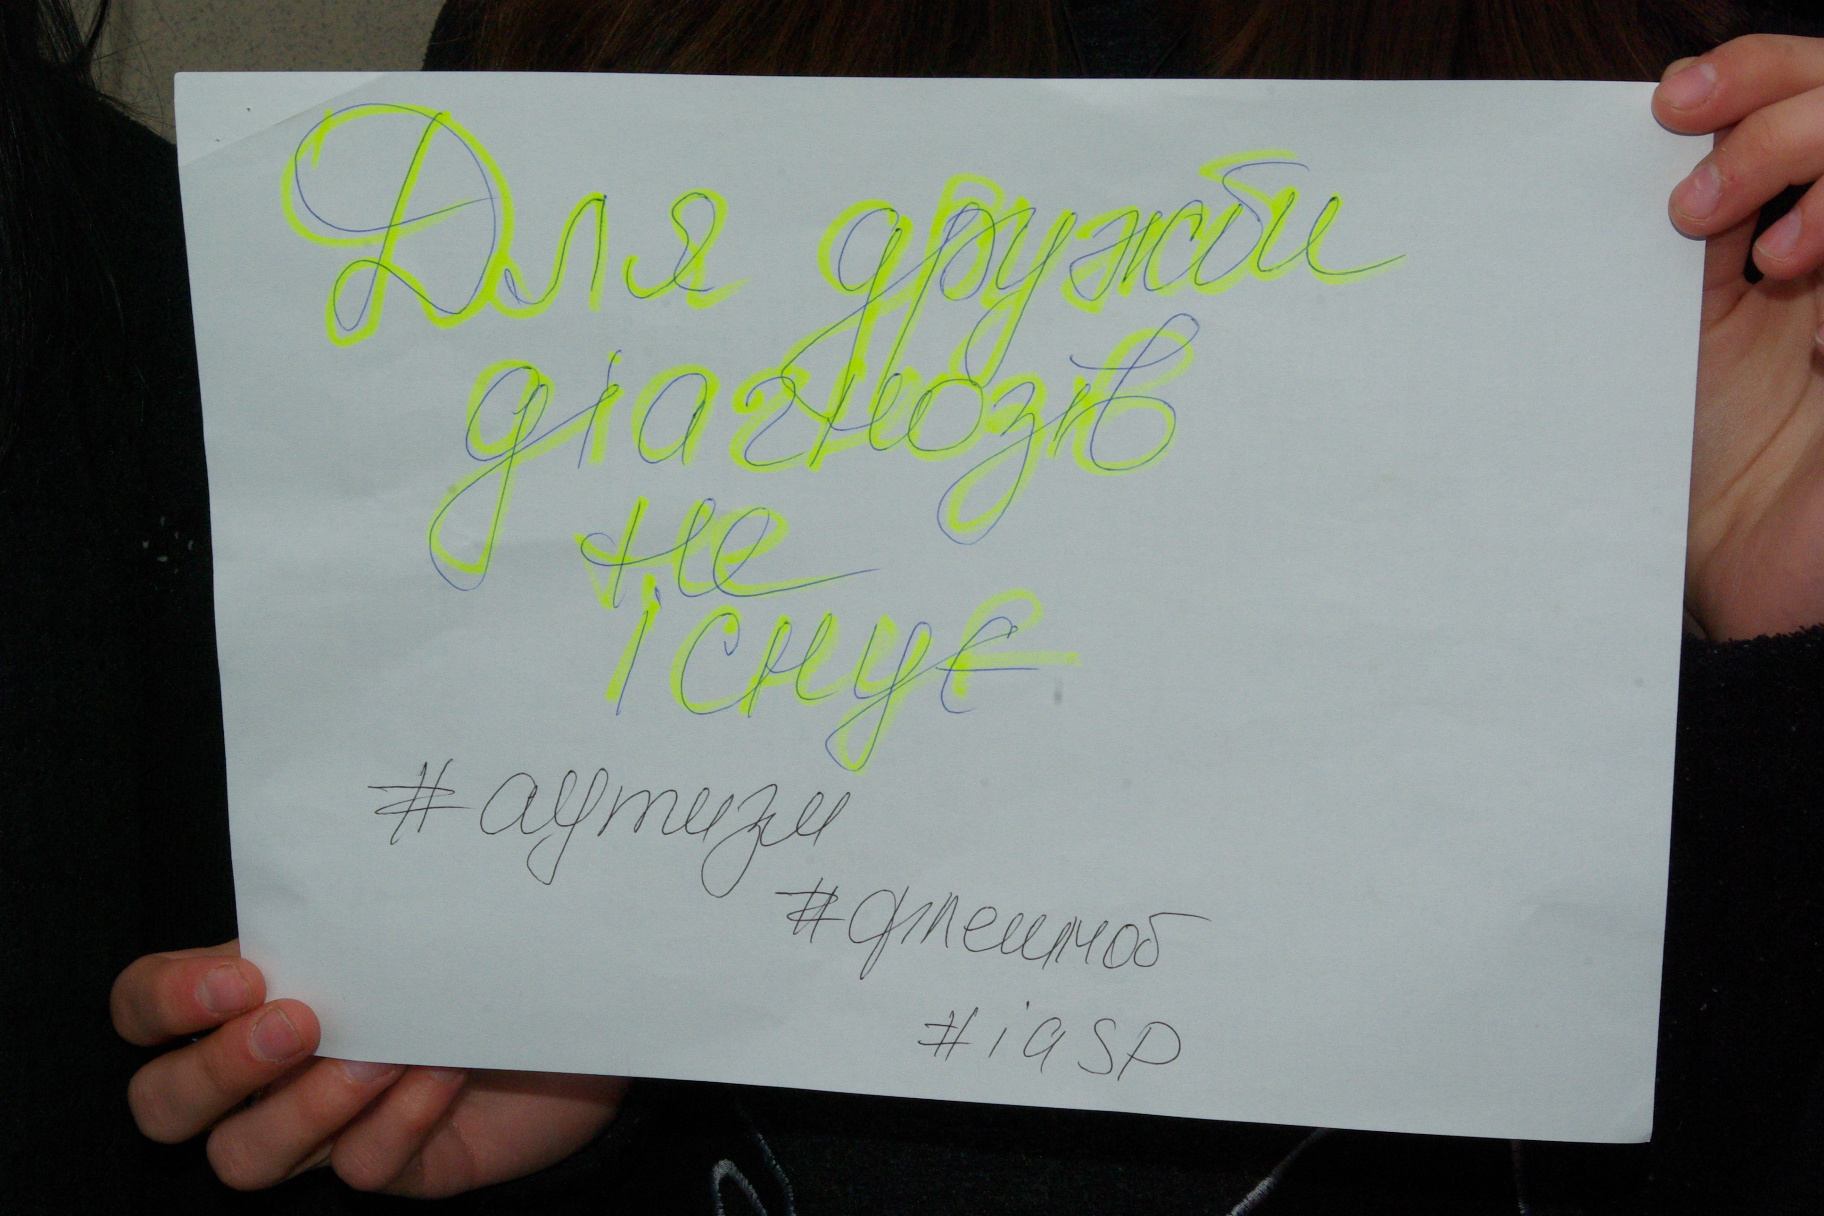 Для дружби
діагнозів
не
існує
#аутизм
#флешмоб
#iasp